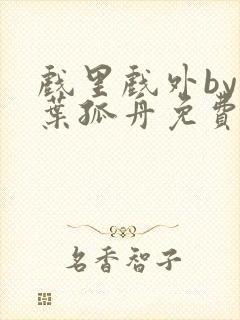 戲里戲外by
葉孤舟免費
名香智子